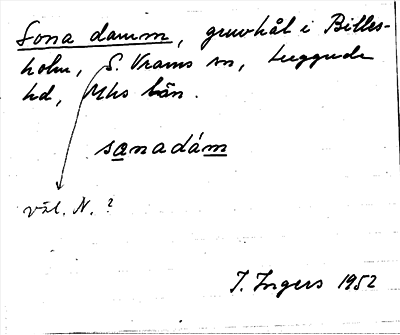 Sona damm, gruvhål i Billes-
holm, S. Vrams sn, Luggude
hd, Mhs län.
sanadám
väl. N. ?
I. Ingers 1952